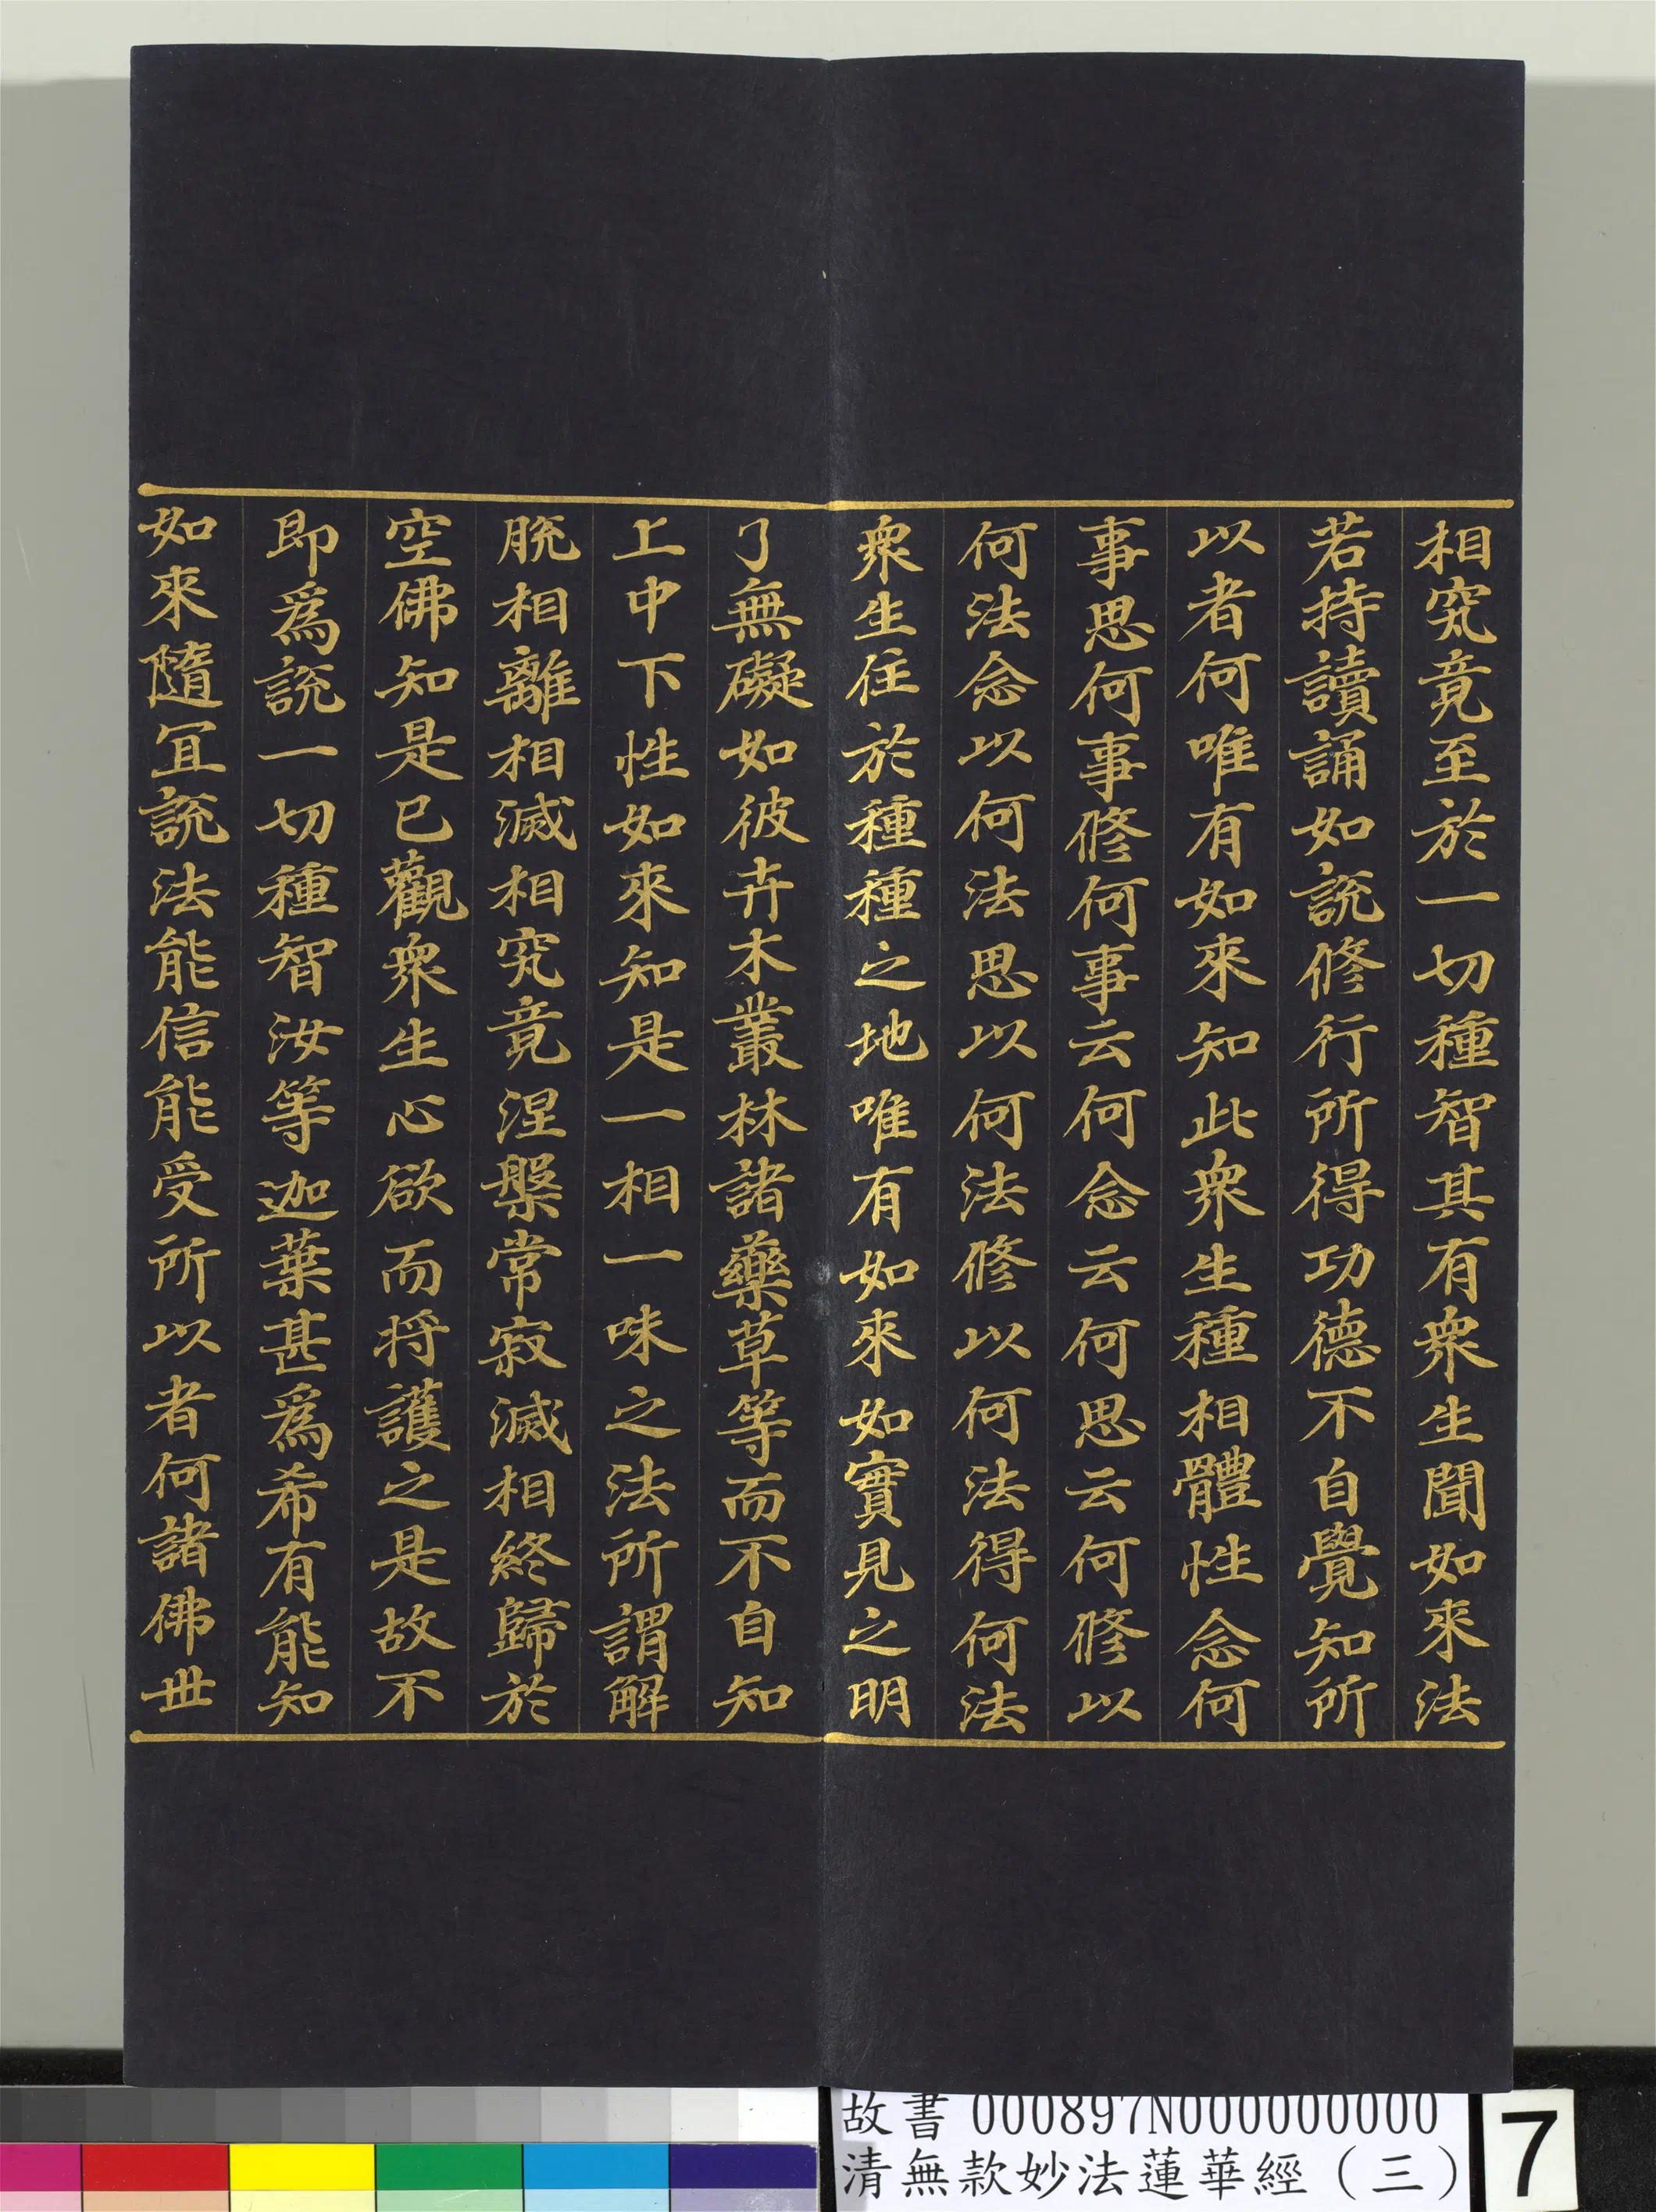 相究竟至於一切種智其有衆生聞如來法
若持讀誦如說修行所得功德不自覺知所
以者何唯有如來知此衆生種相體性念何
事思何事修何事云何念云何思云何修以
何法念以何法思以何法修以何法得何法
衆生住於種種之地唯有如來如實見之明
了無礙如彼卉木叢林諸藥草等而不自知
上中下性如來知是一相一味之法所謂解
脫相離相滅相究竟涅槃常寂滅相終歸於
空佛知是已觀衆生心欲而將護之是故不
即爲說一切種智汝等迦葉甚爲希有能知
如來隨宜說法能信能受所以者何諸佛世
故書 000897N000000000
清無款妙法蓮華經（三）
7